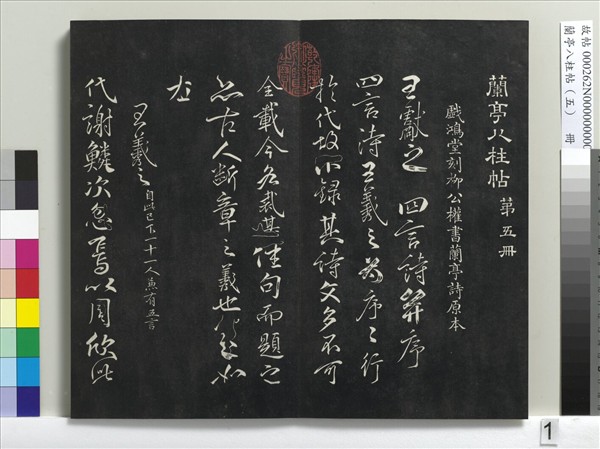 蘭亭八柱帖 第五冊
戲鴻堂刻柳公權書蘭亭詩原本
王獻之四言詩并序
四言詩王羲之為序序行
於代故不錄其詩文多不可
全載今各裁其佳句而題之
亦古人斷章之義也
王羲之 自此已下一十一人兼有五言
代謝鱗次忽焉以周欣此
故帖 000262N000000000
蘭亭八柱帖（五） 冊
1